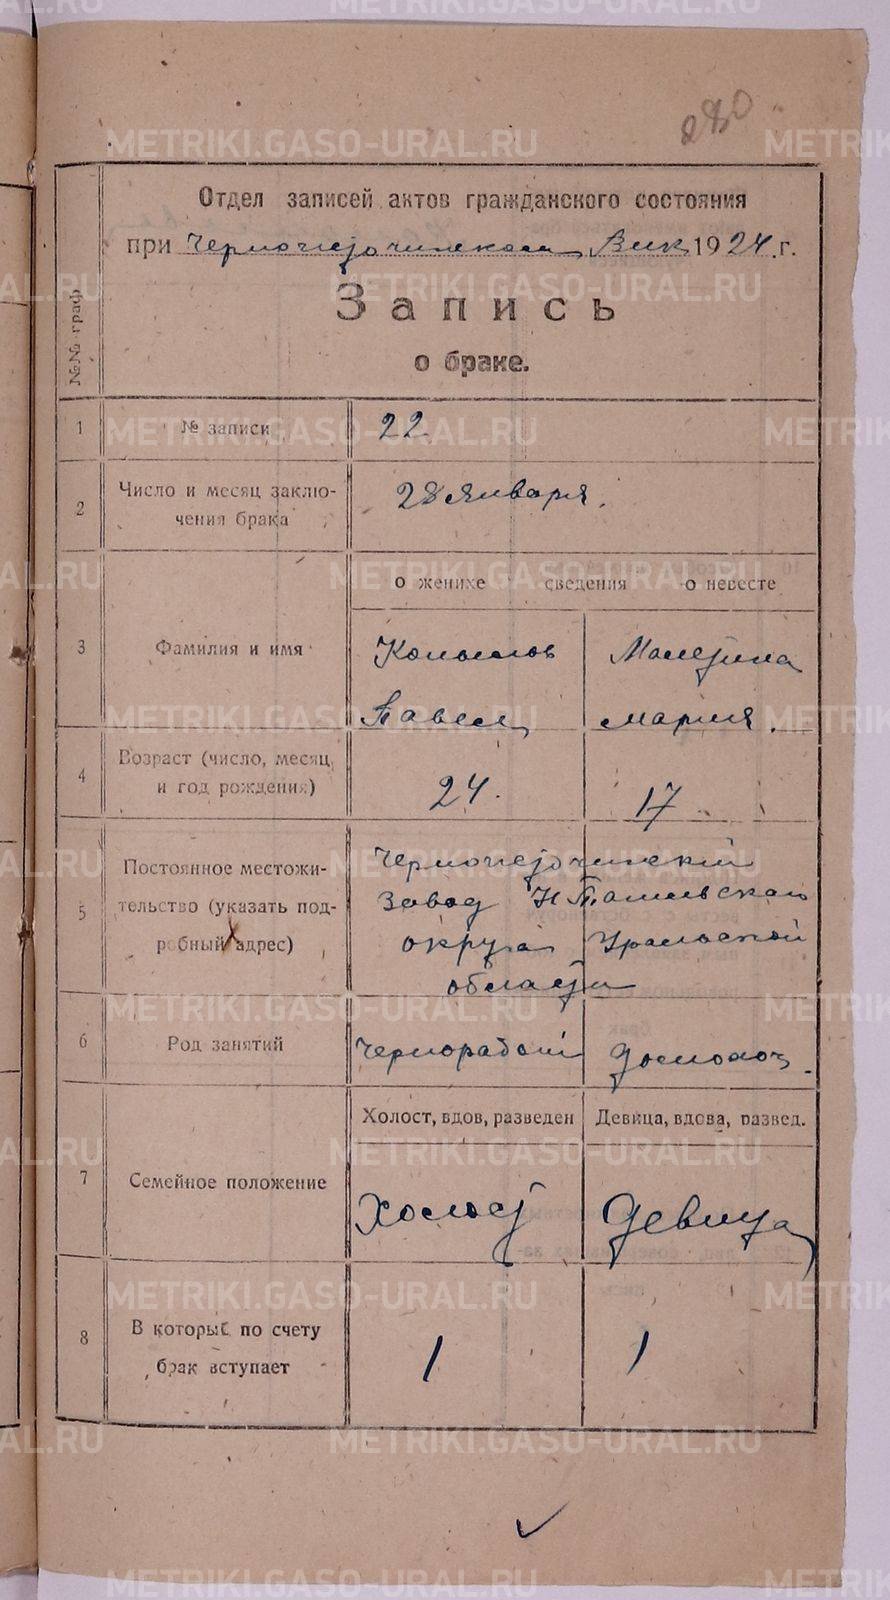 280
Отдел записей актов гражданского состояния
при Черноисточинском Вик 1924 г.
Запись
о браке.
№№ граф
1 № записи 22
2 Число и месяц заклю-
чения брака 28 января.
о женихе сведения о невесте
3 Фамилия и имя
Павел Мария.
4 Возраст (число, месяц
и год рождения) 24. 17
5 Постоянное местожи-
тельство (указать под-
робный адрес)
Черноисточинский
завод Н Тагильскаго
округа Уральской
области
6 Род занятий Чернорабочий Домохоз.
Холост, вдов, разведен Девица, вдова, развед.
7 Семейное положение Холост Девица
8 В который по счету
брак вступает 1 1
METRIKI.GASO-URAL.RU